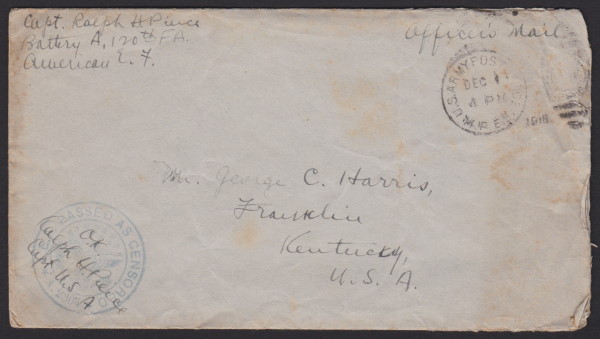 Capt. Ralph H Pierce
Battery A, 120th F.A.
American E. F.
Officers Mail
U.S. ARMY POST
DEC
4 PM
1918
Mr. George C. Harris,
Franklin
Kentucky,
U. S. A.
PASSED AS CENSORED
O.K.
Ralph H Pierce
Capt U.S.A